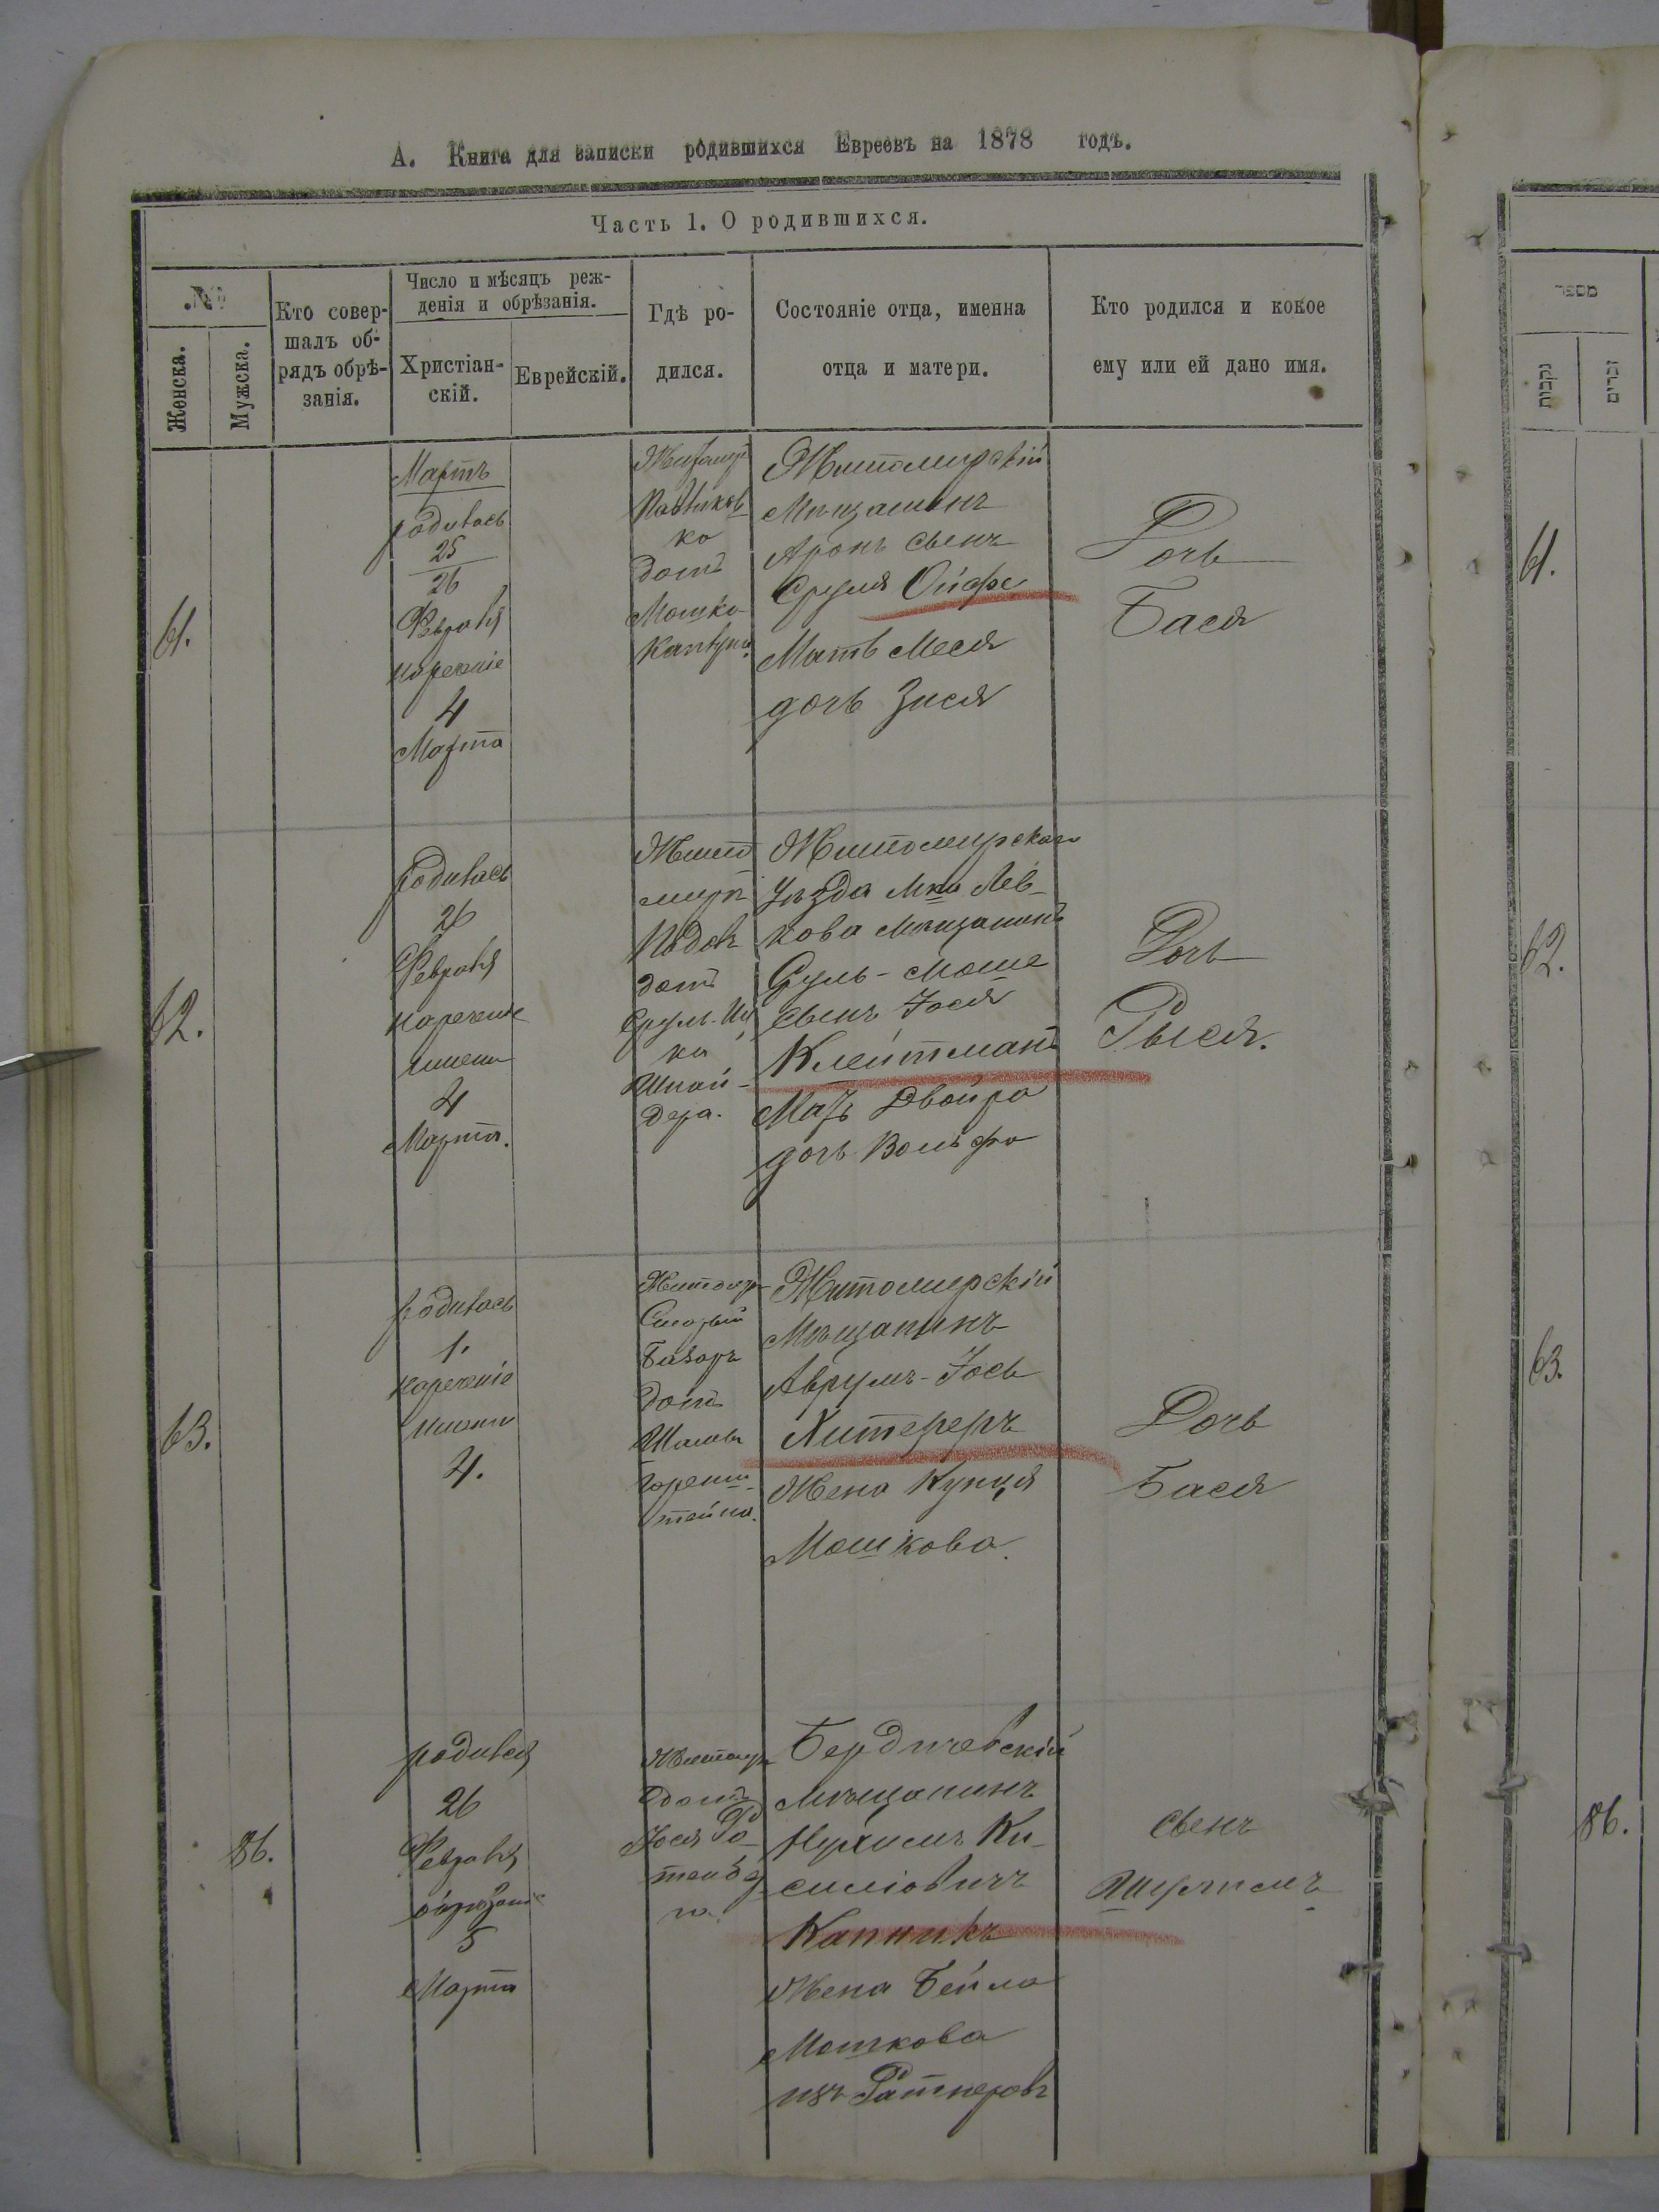 А. Книга для записки родившихся Евреевъ на 1878 годъ.
Часть 1. О родившихся.
№
Женска.
Мужска.
Кто совер-
шалъ об-
рядъ обрѣ-
занія.
Число и мѣсяцъ реж-
денія и обрѣзанія.
Христіан-
скій.
Еврейскій.
Гдѣ ро-
дился.
Состояніе отца, именна
отца и матери.
Кто родился и кокое
ему или ей дано имя.
61.
Мартъ
родилась
25
26
Февраля
нареченіе
4
Марта
ко
домъ
Мошко
Житомирскій
Мѣщанинъ
Аронъ сынъ
Сруля Ойфе
Мать Меся
дочь Зися
Дочь
Бася
62.
родилась
26
Февраля
нареченіе
имени
4
Марта.
Жито
миръ
домъ
Сруль-Иц
ка
Шнай-
дера.
Житомирскаго
Уѣзда Мка Лев-
кова Мѣщанинъ
Сруль-Моше
сынъ Іося
Клейтманъ
Мать Двойра
дочь Вольфа
Дочь
Рыся.
63.
родилась
1.
нареченіе
имени
4.
Житомиръ
Старый
Базаръ
домъ
Горенш-
тейна.
Житомирскій
Мѣщанинъ
Аврумъ-Іось
Хитереръ
Жена Купця
Мошкова.
Дочь
Бася
86.
родился
26
Февраля
обрѣзаніе
5
Марта
Житомиръ
домъ
Іося Ро-
тенбер
га.
Бердичевскій
мѣщанинъ
Нухимъ Ки-
силіовичъ
Капникъ
Жена Бейла
Мошкова
изъ Ратнеровъ
сынъ
מספר
נקבות
זכרים
61.
62.
63.
86.